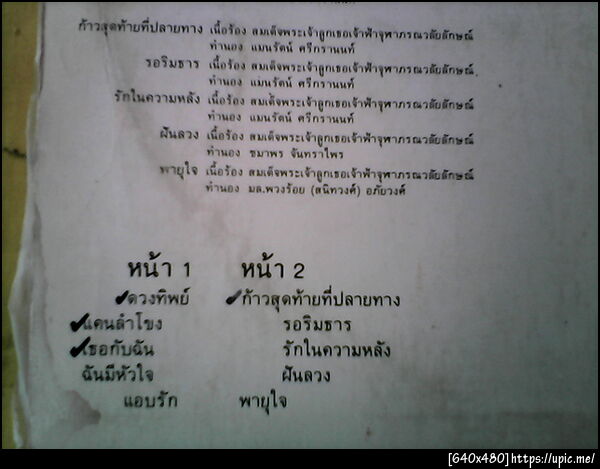 ก้าวสุดท้ายที่ปลายทาง เนื้อร้อง สมเด็จพระเจ้าลูกเธอเจ้าฟ้าจุฬาภรณวลัยลักษณ์
ทำนอง แมนรัตน์ ศรีกรานนท์
รอริมธาร เนื้อร้อง สมเด็จพระเจ้าลูกเธอเจ้าฟ้าจุฬาภรณวลัยลักษณ์
ทำนอง แมนรัตน์ ศรีกรานนท์
รักในความหลัง เนื้อร้อง สมเด็จพระเจ้าลูกเธอเจ้าฟ้าจุฬาภรณวลัยลักษณ์
ทำนอง แมนรัตน์ ศรีกรานนท์
ฝันลวง เนื้อร้อง สมเด็จพระเจ้าลูกเธอเจ้าฟ้าจุฬาภรณวลัยลักษณ์
ทำนอง ชมาพร จันทราไพร
พายุใจ เนื้อร้อง สมเด็จพระเจ้าลูกเธอเจ้าฟ้าจุฬาภรณวลัยลักษณ์
ทำนอง มล.พวงร้อย (สนิทวงศ์) อภัยวงศ์
หน้า 1 หน้า 2
✔ดวงทิพย์ ✔ก้าวสุดท้ายที่ปลายทาง
✔แคนลำโขง รอริมธาร
✔เธอกับฉัน รักในความหลัง
ฉันมีหัวใจ ฝันลวง
แอบรัก พายุใจ
[640x480]https://upic.me/